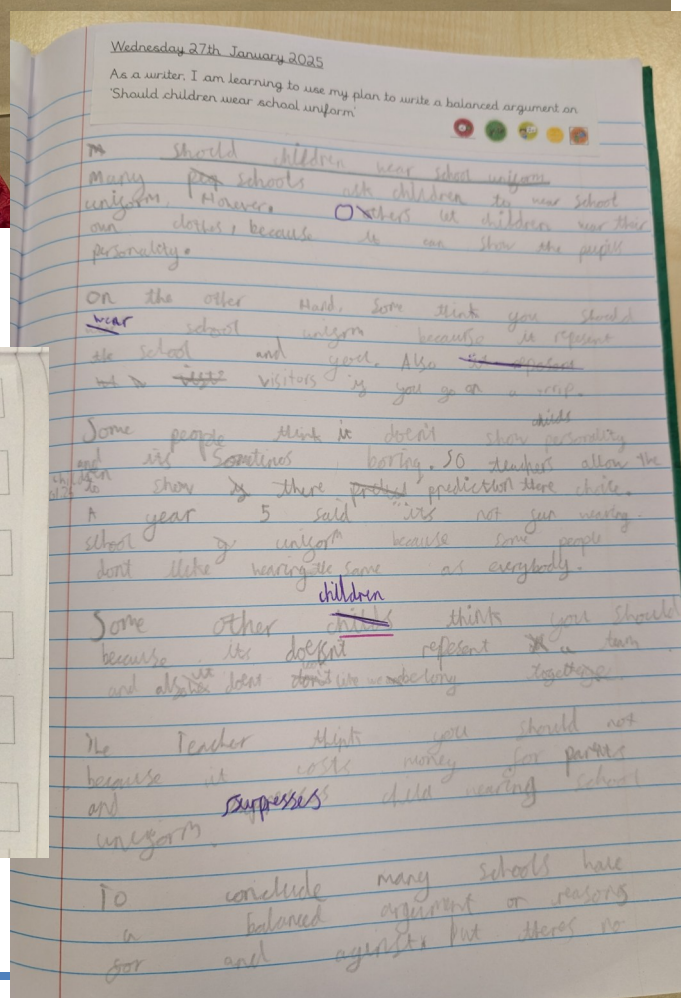 Wednesday 27th January 2025
As a writer, I am learning to use my plan to write a balanced argument on
'Should children wear school uniform'
Should children wear school uniform
Many schools ask children to wear school
uniform, However. Others let children wear their
own clothes, because it can show the pupils
personality.
On the other Hand, Some think you should
wear school uniform because it repesent
the school and Also
visitors if you go on a trip.
childs
Some people think it doesn't show personality
and its Sometimes boring. SO teachers allow the
children to show there prediction there choice.
A year 5 said its not fun wearing
school uniform because some people
dont like wearing the same as everybody.
children
Some other think you should
because its doesn't repesent a team
and also it doent belong together.
The Teacher think you should not
because it costs money for parnts
and surpresses child wearing school
uniform.
To conclude many schools have
a balanced argument or reasons
for and agenst. but theres no